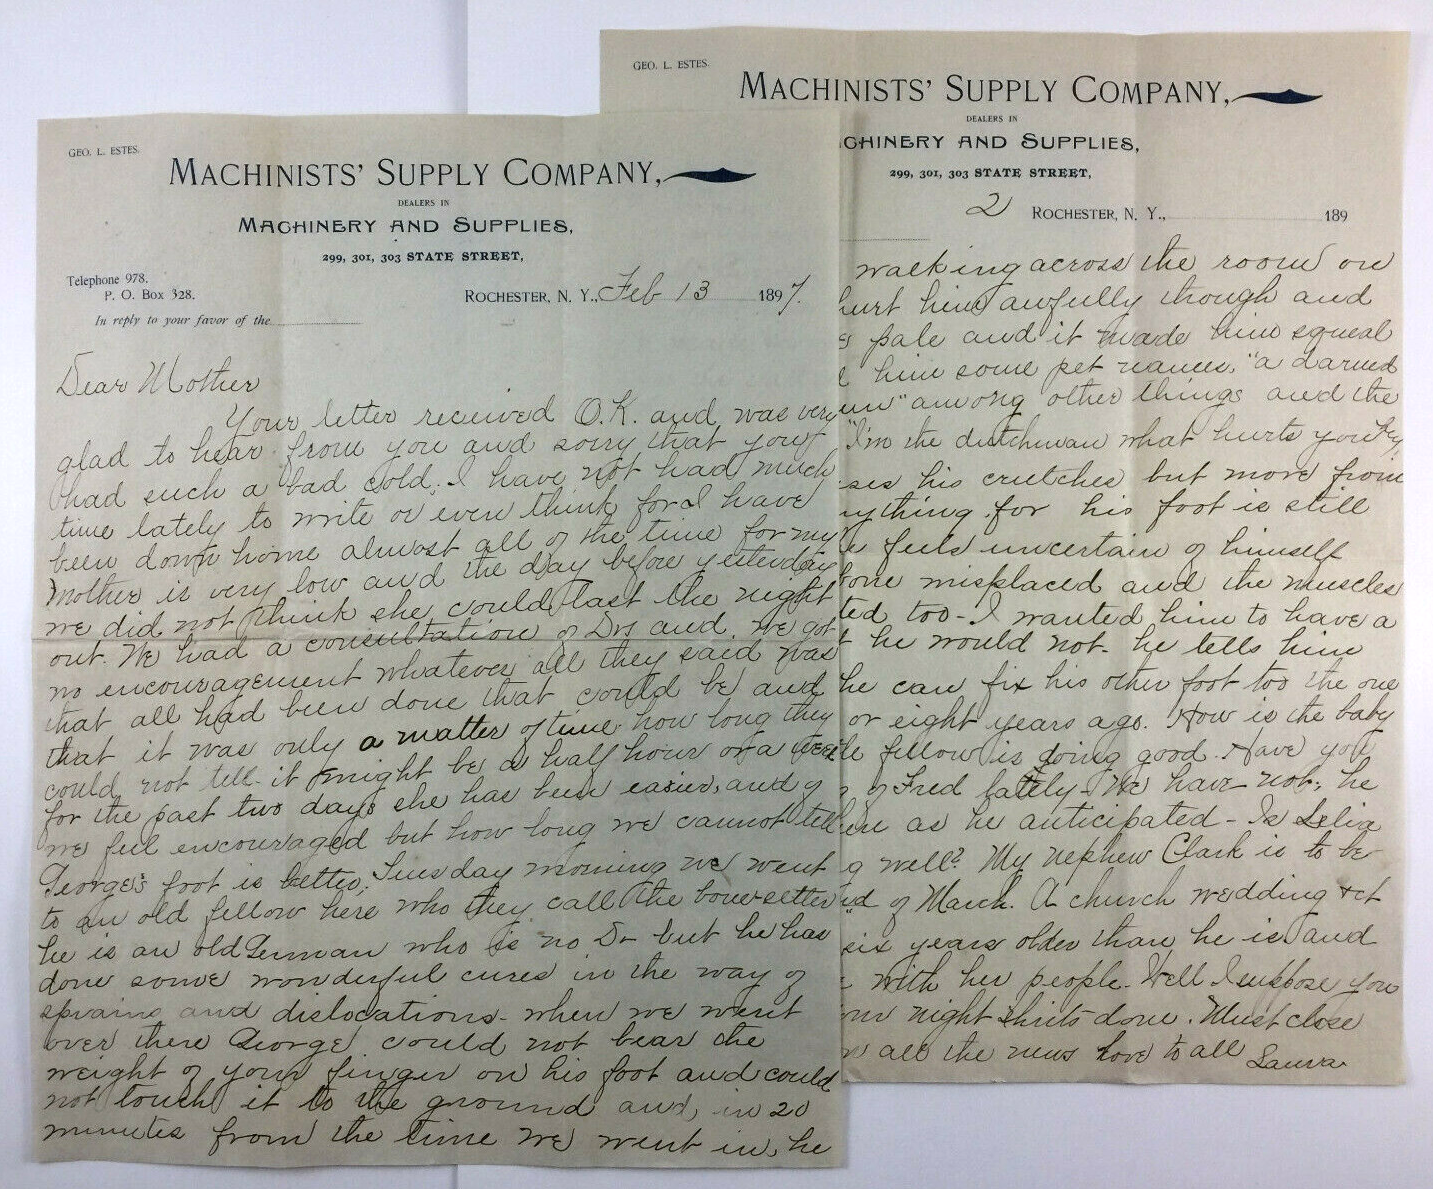 GEO. L. ESTES.
MACHINISTS' SUPPLY COMPANY,
DEALERS IN
MACHINERY AND SUPPLIES,
299, 301, 303 STATE STREET,
Telephone 978.
P. O. Box 328.
ROCHESTER, N. Y., Feb 13 1897.
In reply to your favor of the
Dear Mother
Your letter received O.K. and was very
glad to hear from you and sorry that you
had such a bad cold. I have not had much
time lately to write or even think for I have
been down home almost all of the time for my
Mother is very low and the day before yesterday
we did not think she could last the night
out. We had a consultation of Drs and we got
no encouragement whatever all they said was
that all had been done that could be and
that it was only a matter of time how long they
could not tell - it might be a half hour or a week
for the past two days she has been easier, and
we feel encouraged but how long we cannot tell
George's foot is better. Tuesday morning we went
to an old fellow here who they call the bonesetter
he is an old German who is no Dr but he has
done some wonderful cures in the way of
sprains and dislocations - when we went
over there George could not bear the
weight of your finger on his foot and could
not touch it to the ground and, in 20
minutes from the time we went in, he
GEO. L. ESTES.
MACHINISTS' SUPPLY COMPANY,
DEALERS IN
CHINERY AND SUPPLIES,
299, 301, 303 STATE STREET,
2 ROCHESTER, N. Y., 189
walking across the room on
hurt him awfully though and
pale and it made him squeal
him some pet names, "a darned
" among other things and the
"I'm the dutchman what hurts you
his crutches but more from
thing for his foot is still
feels uncertain of himself
bone misplaced and the muscles
ted too - I wanted him to have a
he would not - he tells him
he can fix his other foot too the one
or eight years ago. How is the baby
fellow is doing good. Have you
of Fred lately We have not, he
as he anticipated - Is Lelia
well? My nephew Clark is to be
of March. A church wedding &ct
six years older than he is and
with her people. Well I suppose you
night shirts done. Must close
all the news love to all Laura